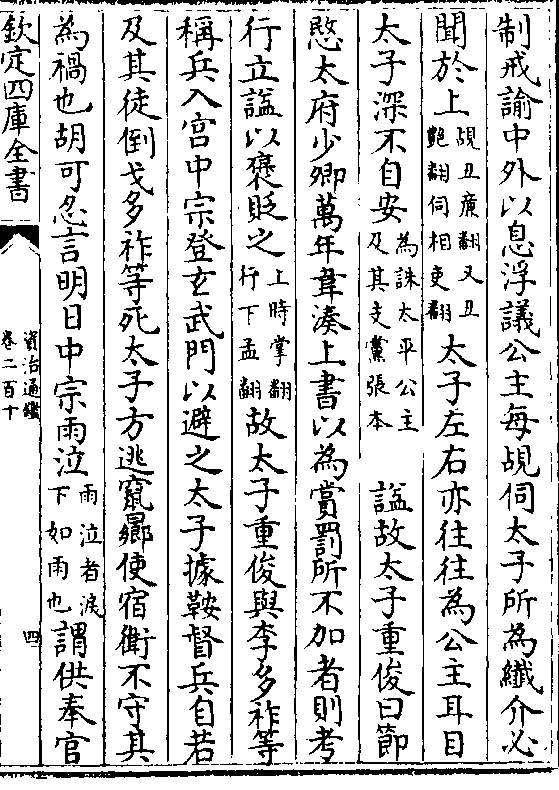 制戒諭中外以息浮議公主每覘伺太子所為纖介必
聞於上覘丑廉翻又丑艷翻伺相吏翻太子左右亦往往為公主耳目
太子深不自安為誅太平公主及其支黨張本 諡故太子重俊曰節
愍太府少卿萬年韋湊上書以為賞罰所不加者則考
行立諡以襃貶之上時掌翻行下孟翻故太子重俊與李多祚等
稱兵入宫中宗登玄武門以避之太子據鞍督兵自若
及其徒倒戈多祚等死太子方逃竄曏使宿衛不守其
為禍也胡可忍言明日中宗雨泣雨泣者淚下如雨也謂供奉官
欽定四庫全書
資治通鑑
卷二百十
四